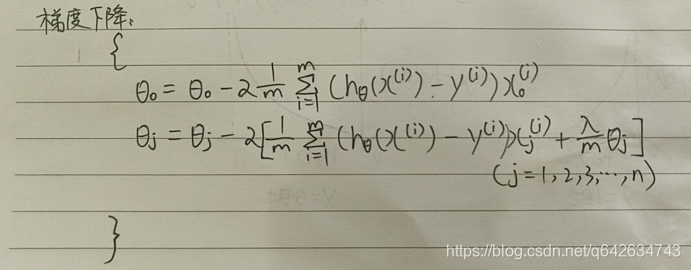 梯度下降:
{
θ₀ = θ₀ - 2 1/m Σ_{i=1}^{m} (h_θ(x^{(i)}) - y^{(i)}) x₀^{(i)}
θ_j = θ_j - 2[1/m Σ_{i=1}^{m} (h_θ(x^{(i)}) - y^{(i)}) x_j^{(i)} + λ/m θ_j]
(j=1,2,3,…,n)
}
https://blog.csdn.net/q642634743